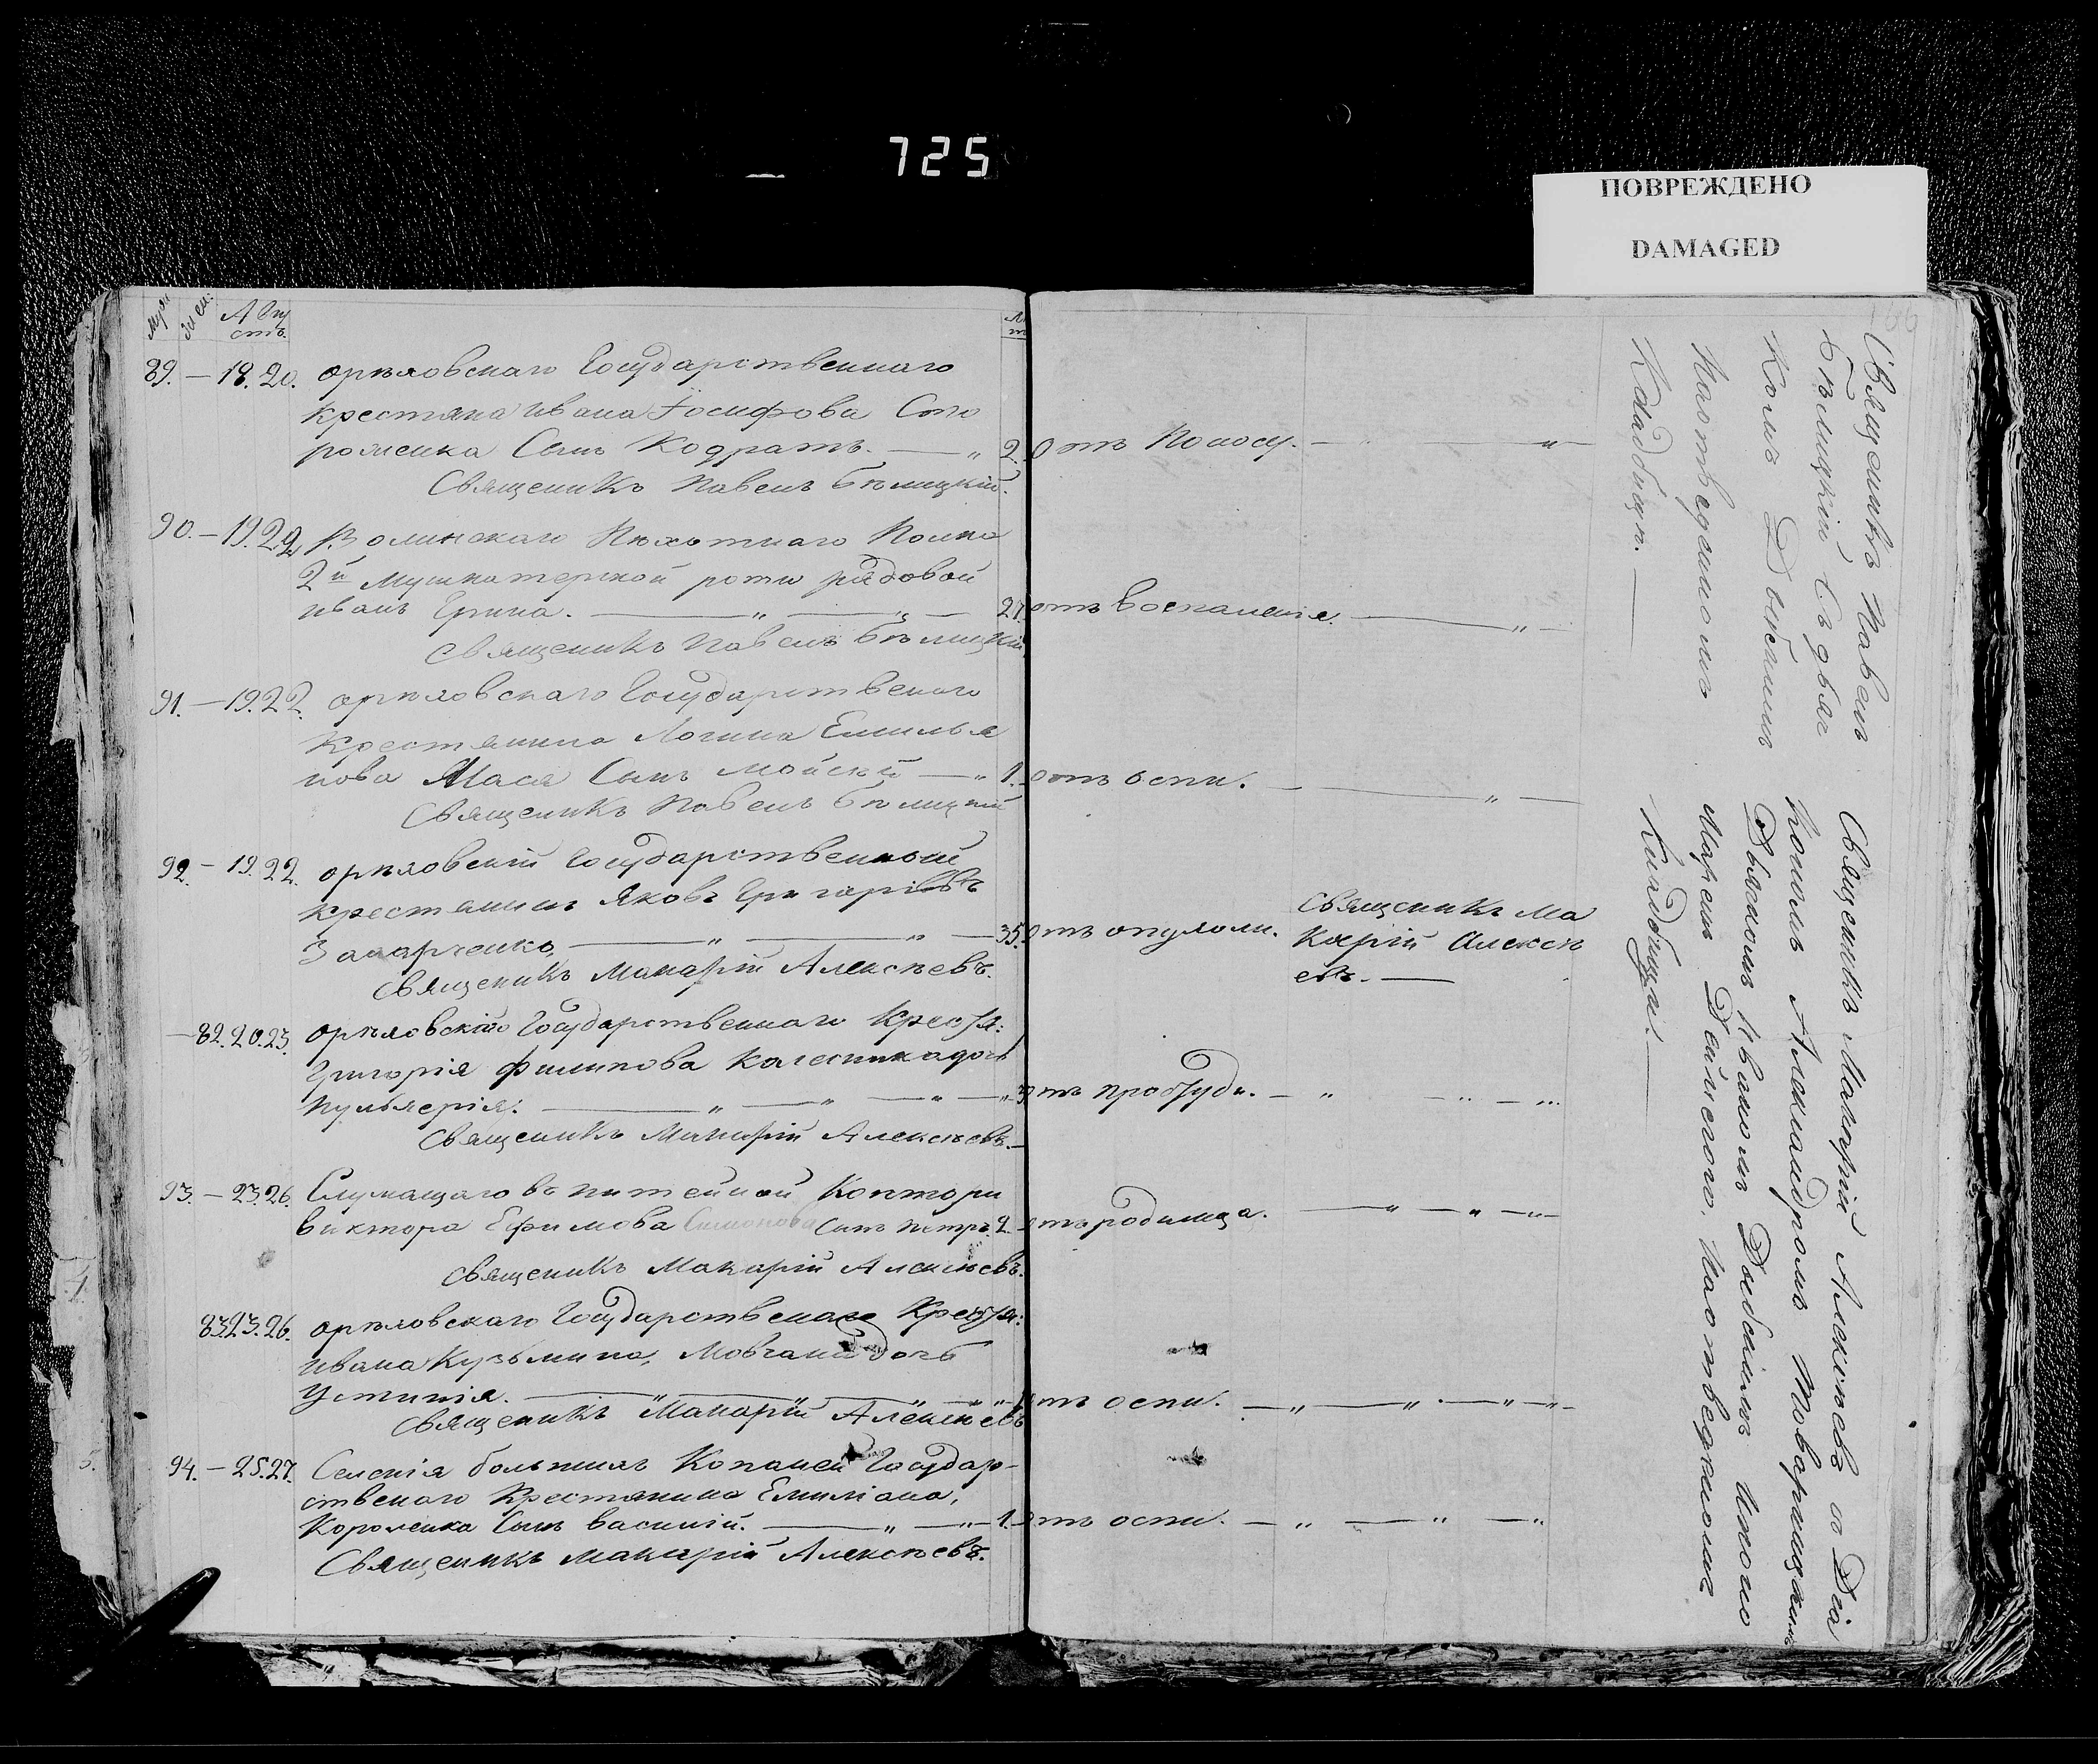 725
ПОВРЕЖДЕНО
DAMAGED
Муж. жен. Авгу
стъ.
89. — 18. 20. орѣховскаго Государственнаго
крестяна Ивана Іосифова Сто
роженка Сынъ Кодратъ. — „ 2. отъ Поносу. — „ —
Священикъ Павелъ Бѣлицкій.
90. — 19. 22. Волинскаго Пѣхотнаго Полка
2й Мушкатерской роти рядовой
Иванъ — „ — „ — 27. отъ воспаленія. — „ —
Священикъ Павелъ Бѣлицкій
91. — 19. 22. орѣховскаго Государственаго
Крестянина Логина Емилья
нова Маса Сынъ Мойсей — „ 1. отъ оспи. — „ —
Священикъ Павелъ Бѣлицкій
92. — 19. 22. орѣховскій Государственный
крестянинъ Яковъ Григоріевъ
Захарченко, — „ — „ — 35. отъ опухоли. Священикъ Ма
карій Алексѣ
евъ. —
Священикъ Макарій Алексѣевъ.
— 82. 20. 23. орѣховскаго Государственнаго Крестя:
Григорія Филипова Калесника дочь
Пульхерія. — „ — „ — „ — „ 3 отъ простуди. — „ — „ — „
Священикъ Макарій Алексѣевъ. —
93. — 23. 26. Служащаго въ питейной Контори
Виктора Ефимова Симонова Сынъ Петръ. 2. отъ родимца. — „ — „ — „
Священикъ Макарій Алексѣевъ.
83 23. 26. орѣховскаго Государственаго Крестя:
Ивана Кузьмина, Мовчана дочь
Устинія. — „ — „ — „ — „ 1 отъ оспи. — „ — „ — „ — „ —
Священикъ Макарій Алексѣевъ
94. — 25. 27. Селенія большихъ Копаней Государ-
ственаго Крестянина Емиліана,
Короленка Сынъ Василій. — „ — „ — 1. отъ оспи. — „ — „ — „
Священикъ Макарій Алексѣевъ.
Священикъ Павелъ
Бѣлицкій Съ дьяч
комъ Дѣбскимъ
На отведеномъ
Кладбищи. —
Священикъ Макарій Алексѣевъ со Діа
кономъ Александромъ Товарницкимъ
Дьячкомъ Иваномъ Дѣбскимъ
На отведеномъ
Кладбищи. —